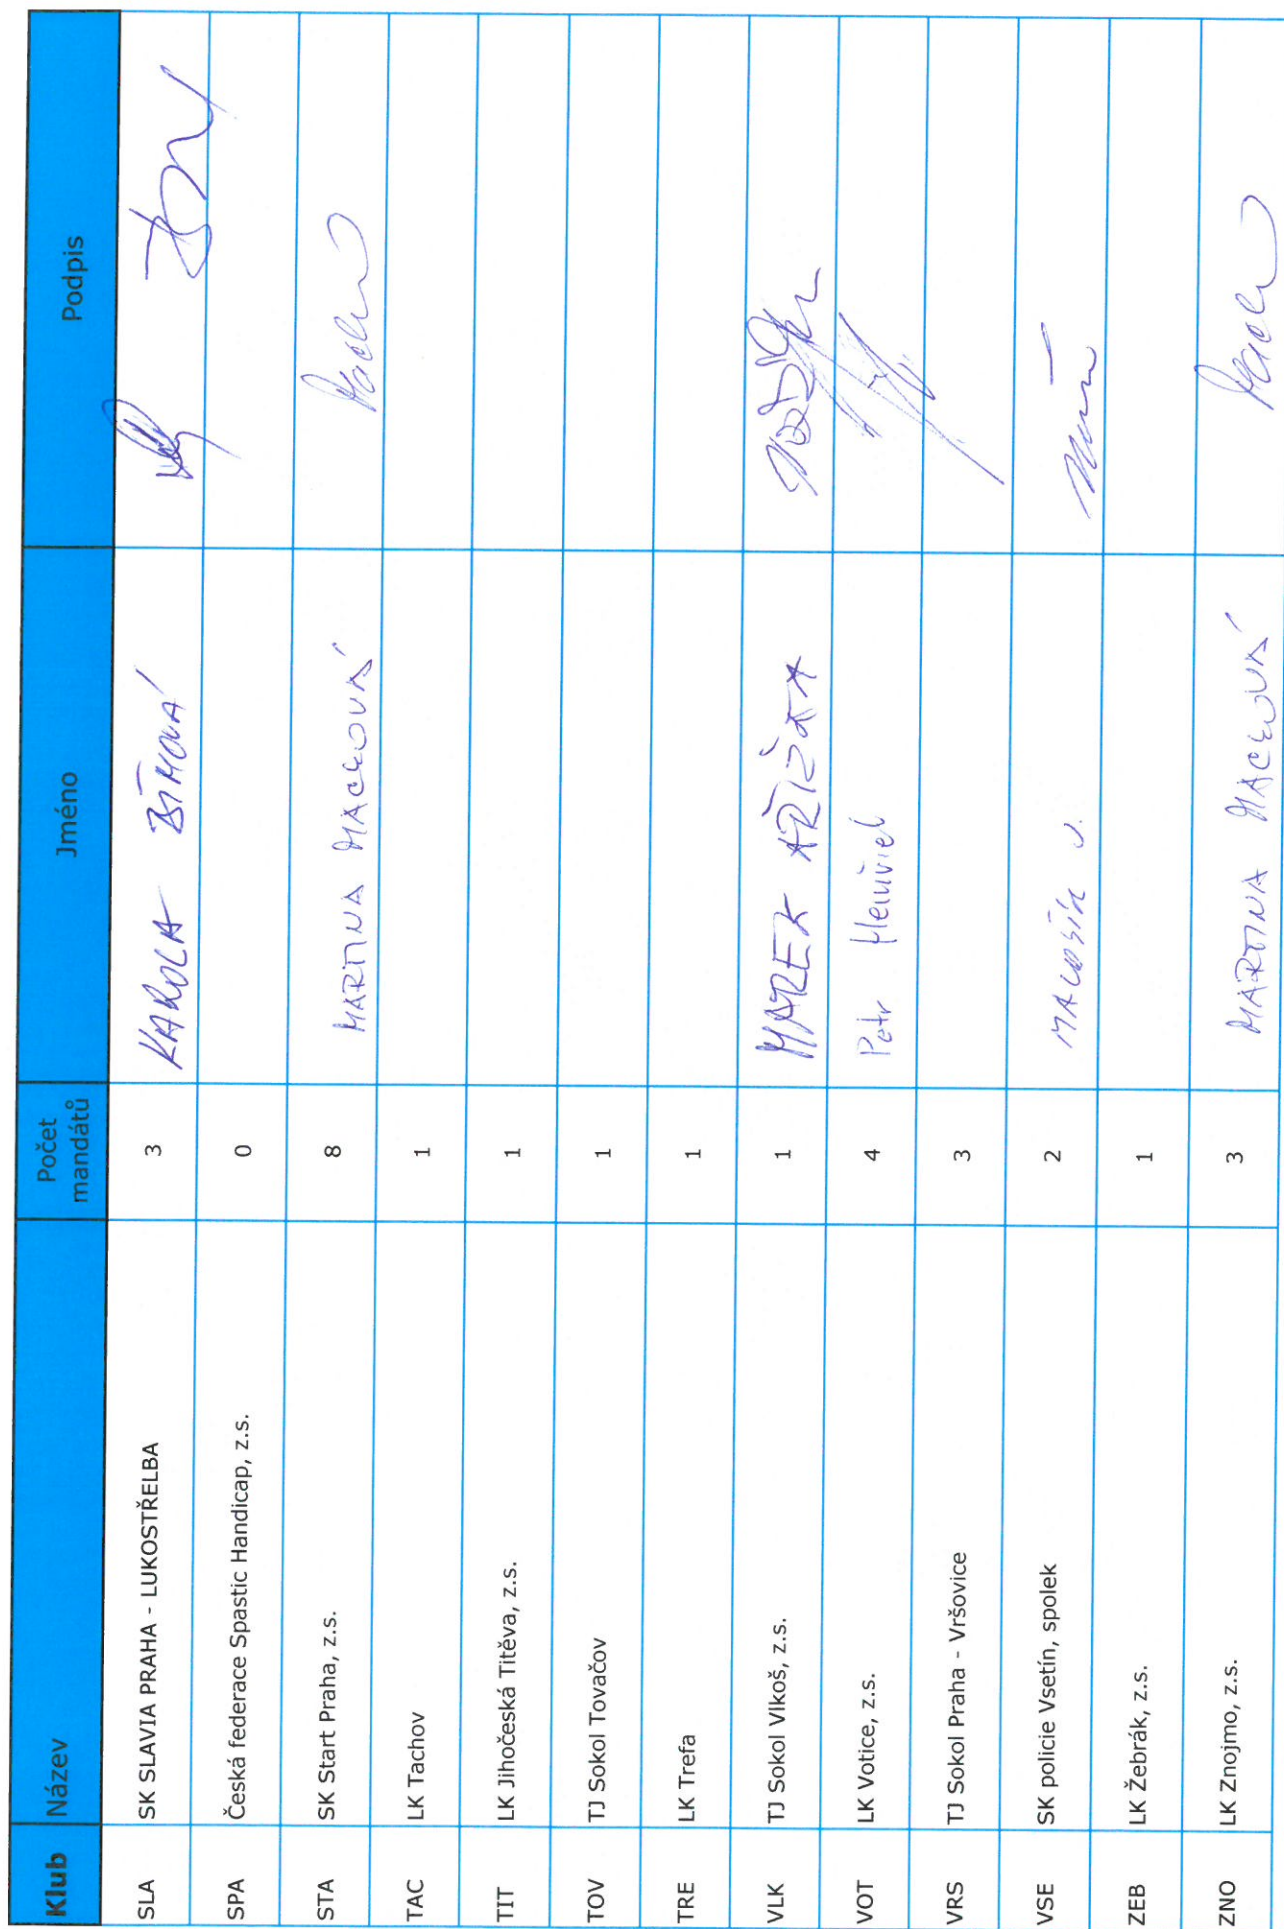 Klub Název Počet mandátů Jméno Podpis
SLA SK SLAVIA PRAHA - LUKOSTŘELBA 3 KAROLA
SPA Česká federace Spastic Handicap, z.s. 0
STA SK Start Praha, z.s. 8 MARTINA MACKOVÁ
TAC LK Tachov 1
TIT LK Jihočeská Titěva, z.s. 1
TOV TJ Sokol Tovačov 1
TRE LK Trefa 1
VLK TJ Sokol Vlkoš, z.s. 1 MAREK KŘIŽKA
VOT LK Votice, z.s. 4 Petr
VRS TJ Sokol Praha - Vršovice 3
VSE SK policie Vsetín, spolek 2
ZEB LK Žebrák, z.s. 1
ZNO LK Znojmo, z.s. 3 MARTINA MACKOVÁ